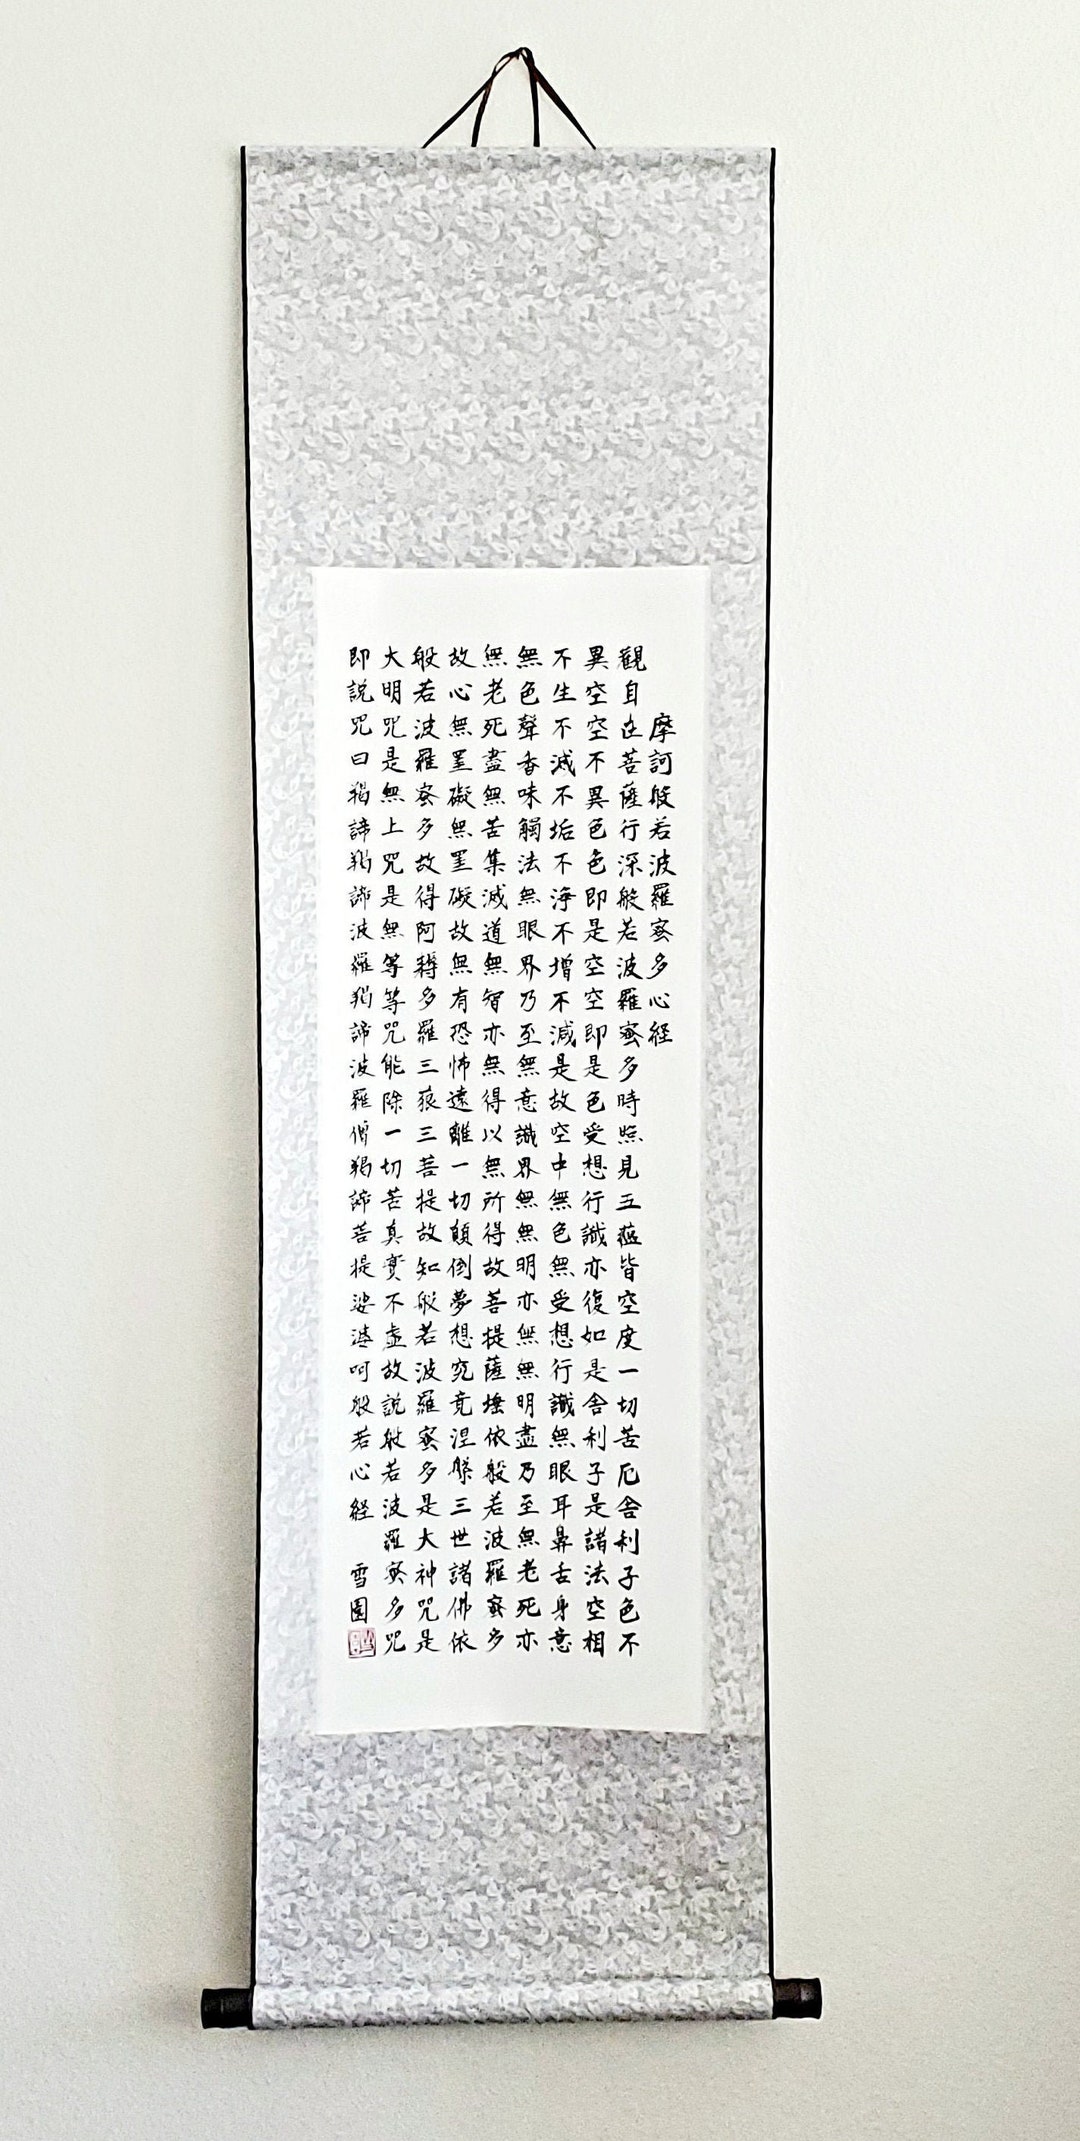 摩訶般若波羅蜜多心経
觀自在菩薩行深般若波羅蜜多時照見五蘊皆空度一切苦厄舎利子色不
異空空不異色色即是空空即是色受想行識亦復如是舎利子是諸法空相
不生不滅不垢不浄不増不減是故空中無色無受想行識無眼耳鼻舌身意
無色聲香味觸法無眼界乃至無意識界無無明亦無無明盡乃至無老死亦
無老死盡無苦集滅道無智亦無得以無所得故菩提薩埵依般若波羅蜜多
故心無罣礙無罣礙故無有恐怖遠離一切顛倒夢想究竟涅槃三世諸佛依
般若波羅蜜多故得阿耨多羅三藐三菩提故知般若波羅蜜多是大神咒是
大明咒是無上咒是無等等咒能除一切苦真實不虚故説般若波羅蜜多咒
即説咒曰羯諦羯諦波羅羯諦波羅僧羯諦菩提娑婆呵般若心経 雪園